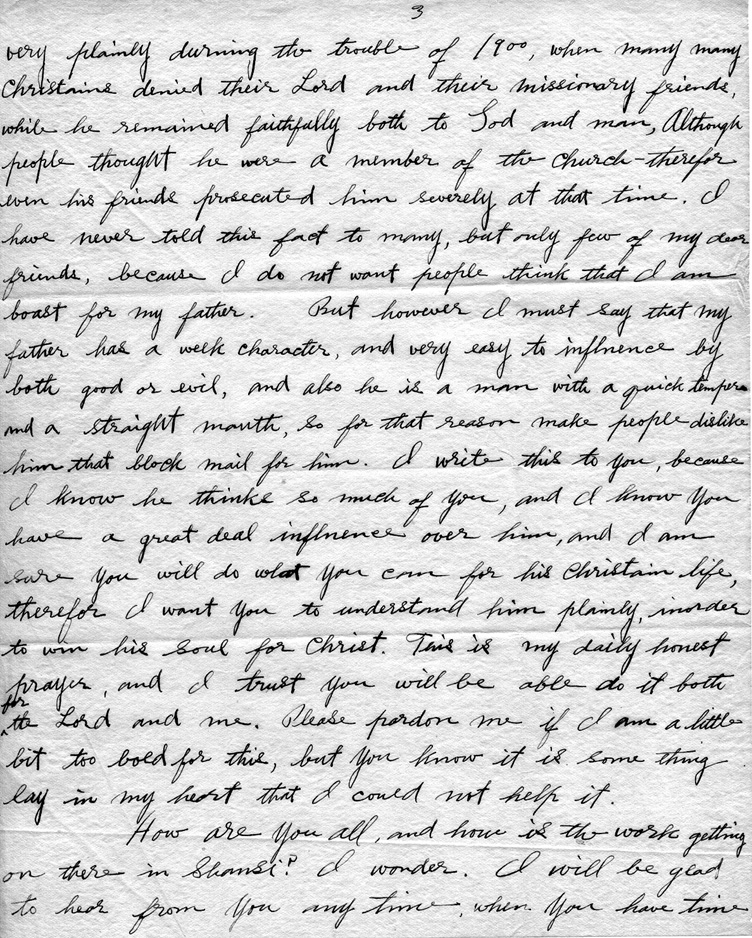 3
very plainly durning the trouble of 1900, when many many
Christains denied their Lord and their missionary friends,
while he remained faithfully both to God and man, Although
people thought he were a member of the church-therefor
even his friends prosecuted him severely at that time. I
have never told this fact to many, but only few of my dear
friends, because I do not want people think that I am
boast for my father. But however I must say that my
father has a week character, and very easy to influence by
both good or evil, and also he is a man with a quick temper
and a straight mauth, so for that reason make people dislike
him that block mail for him. I write this to you, because
I know he thinks so much of you, and I know you
have a great deal influence over him, and I am
sure you will do what you can for his Christain life,
therefor I want you to understand him plainly, inorder
to win his soul for Christ. This is my daily honest
prayer, and I trust you will be able do it both
for
^ the Lord and me. Please pardon me if I am a little
bit too bold for this, but you know it is some thing
lay in my heart that I could not help it.
How are you all, and how is the work getting
on there in Shansi? I wonder. I will be glad
to hear from you any time, when you have time